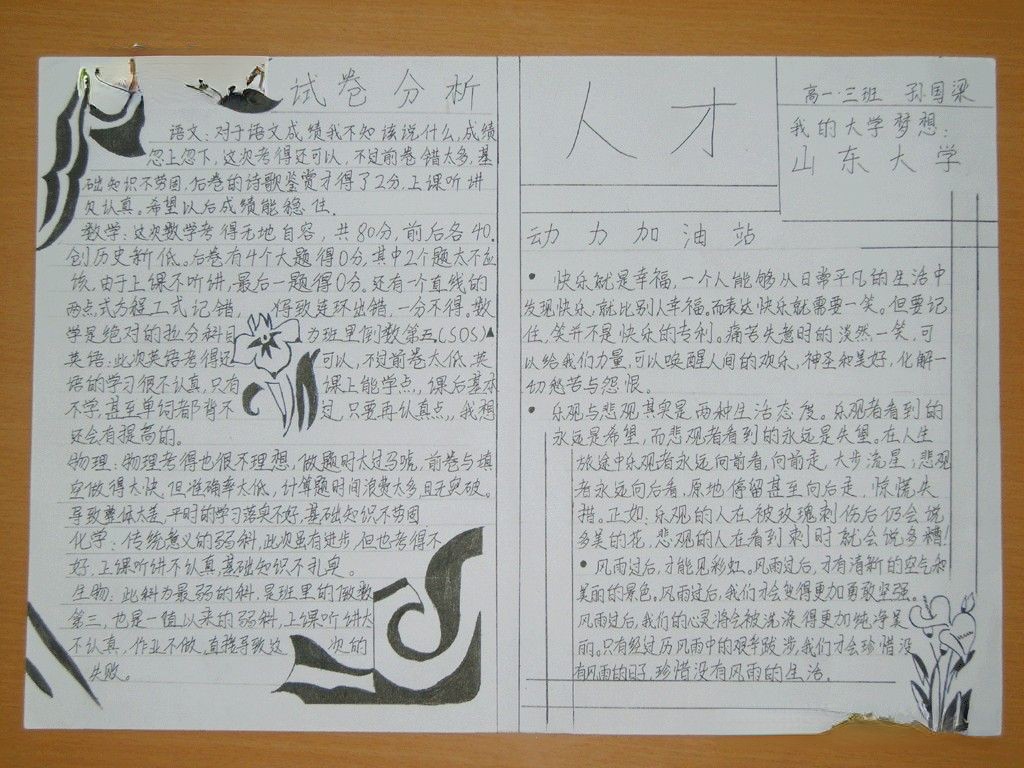 试卷分析
语文:对于语文成绩我不知该说什么,成绩
忽上忽下,这次考得还可以,不过前卷错太多,基
础知识不劳固,后卷的诗歌鉴赏才得了2分,上课听讲
欠认真。希望以后成绩能稳住.
数学:这次数学考得无地自容,共80分,前后各40.
创历史新低。后卷有4个大题得0分,其中2个题太不应
该,由于上课不听讲,最后一题得0分。还有一个直线的
两点式方程工式记错,得致连环出错,一分不得,数
学是绝对的拉分科目 力班里倒数第五,(SOS)▲
英语:此次英语考得还可以,不过前卷太低,英
语的学习很不认真,只有课上能学点,课后基本
不学,甚至单词都背不过,只要再认真点,我想
还会有提高的。
物理:物理考得也很不理想,做题时太过马唬,前卷与填
空做得太快,但准确率太低,计算题时间浪费太多且无突破。
导致整体太差,平时的学习落实不好,基础知识不劳固
化学:传统意义的弱科,此次虽有进步,但也考得不
好,上课听讲不认真,基础知识不扎实。
生物:此科力最弱的科,是班里的倒数
第三,也是一值以来的弱科,上课听讲太
不认真,作业不做,直接导致这次的
失败。
人才
高一·三班 孙国梁
我的大学梦想:
山东大学
动力加油站
• 快乐就是幸福,一个人能够从日常平凡的生活中
发现快乐,就比别人幸福。而表达快乐就需要一笑。但要记
住,笑并不是快乐的专利。痛苦失意时的淡然一笑,可
以给我们力量,可以唤醒人间的欢乐,神圣和美好,化解一
切愁苦与怨恨。
• 乐观与悲观其实是两种生活态度。乐观者看到的
永远是希望,而悲观者看到的永远是失望。在人生
旅途中乐观者永远向前看,向前走,大步流星;悲观
者永远向后看,原地停留甚至向后走,惊慌失
措。正如:乐观的人在被玫瑰刺伤后仍会说
多美的花,悲观的人在看到刺时就会说多糟!
• 风雨过后,才能见彩虹。风雨过后,才有清新的空气和
美丽的景色。风雨过后,我们才会变得更加勇敢坚强。
风雨过后,我们的心灵将会被洗涤得更加纯净美
丽。只有经过历风雨中的艰辛跋涉,我们才会珍惜没
有风雨的日子,珍惜没有风雨的生活。